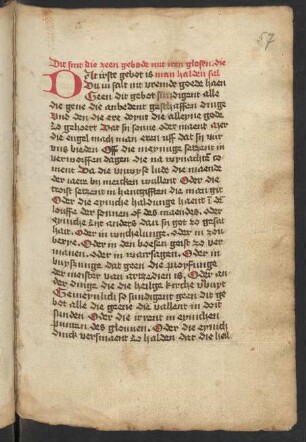 57
Dit sint die zeen gebode mit iren glosen. die
Dat irste gebot is man halden sal
Du in salt nit vremde goede haen
Geen dit gebot sundigent alle
die gene die anbedent geschaffen dinge
Vnd den die ere doynt die alleyne gode
zo gehoert Dat si sonne oder maent
die engel mach man eren uff dat si vur
uns bieden Off die
in vermoissen dagen die na
ment Da die
der iaere by mircken Oder die
troist setzent in hantgifften die man gift
Oder die eyniche haldunge haent
louffe der sonnen off des maendes. oder
eyniche lyt anders dan si got zo gesat
hait. Oder in wichelunge. oder in zou
verye. Oder in den boesen geist zo ver
manen. oder in waersagen. Oder in
versununge dat geen die
der meister van artzedien is. Oder an
der dinge die die heilge kirche
Gemeynlich so sundigent geen dit ge
bot alle die geene die vallent in doit
sunden Oder die irrent in eynichen
punten des glouven. Oder die eynich
dinck versmaent zo halden dat die heil